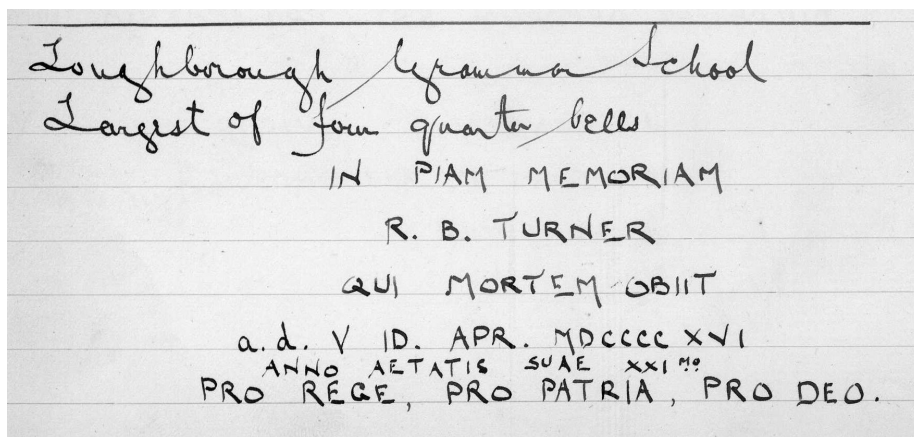 Loughborough Grammar School
Largest of four quarter bells
IN PIAM MEMORIAM
R. B. TURNER
QUI MORTEM OBIIT
a.d. V ID. APR. MDCCCCXVI
ANNO AETATIS SUAE XXIMO
PRO REGE, PRO PATRIA, PRO DEO.